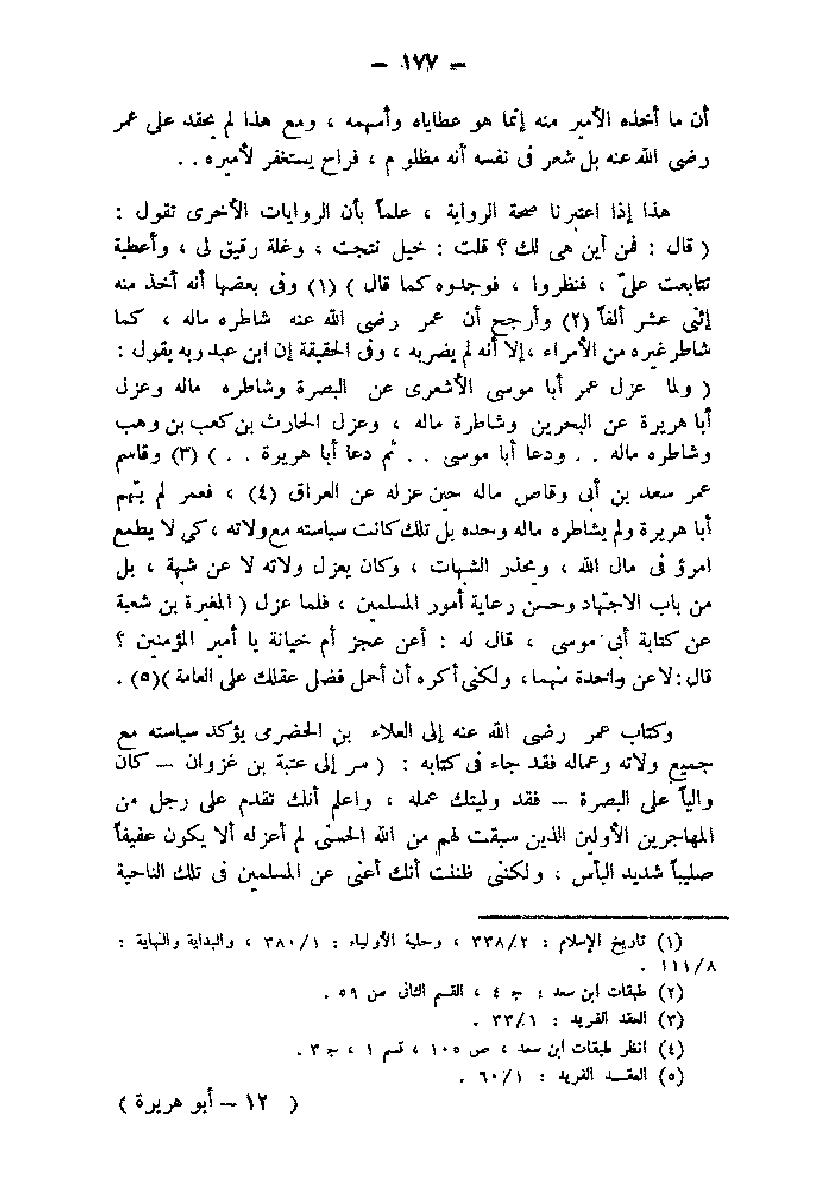 — ١٧٧ —
أن ما أخذه الأمير منه إنما هو عطاياه وأسهمه ، ومع هذا لم يحقد على عمر
رضى الله عنه بل شعر فى نفسه أنه مظلوم ، فراح يستغفر لأميره . .
هذا إذا اعتبرنا صحة الرواية ، علماً بأن الروايات الأخرى تقول :
( قال : فمن أين هى لك ؟ قلت : خيل نتجت ، وغلة رقيق لى ، وأعطية
تتابعت علىّ ، فنظروا ، فوجدوه كما قال ) (١) وفى بعضها أنه أخذ منه
إثنى عشر ألفاً (٢) وأرجح أن عمر رضى الله عنه شاطره ماله ، كما
شاطر غيره من الأمراء ، إلا أنه لم يضربه ، وفى الحقيقة إن ابن عبد ربه يقول :
( ولما عزل عمر أبا موسى الأشعرى عن البصرة وشاطره ماله وعزل
أبا هريرة عن البحرين وشاطرة ماله ، وعزل الحارث بن كعب بن وهب
وشاطره ماله . . ودعا أبا موسى . . ثم دعا أبا هريرة . . ) (٣) وقاسم
عمر سعد بن أبى وقاص ماله حين عزله عن العراق (٤) ، فعمر لم يتهم
أبا هريرة ولم يشاطره ماله وحده بل تلك كانت سياسته مع ولاته ، كى لا يطمع
امرؤ فى مال الله ، ويحذر الشبهات ، وكان يعزل ولاته لا عن شبهة ، بل
من باب الاجتهاد وحسن رعاية أمور المسلمين ، فلما عزل ( المغيرة بن شعبة
عن كتابة أبى موسى ، قال له : أعن عجز أم خيانة يا أمير المؤمنين ؟
قال : لا عن واحدة منهما ، ولكنى أكره أن أحمل فضل عقلك على العامة )(٥) .
وكتاب عمر رضى الله عنه إلى العلاء بن الحضرمى يؤكد سياسته مع
جميع ولاته وعماله فقد جاء فى كتابه : ( سر إلى عتبة بن غزوان — كان
والياً على البصرة — فقد وليتك عمله ، واعلم أنك تقدم على رجل من
المهاجرين الأولين الذين سبقت لهم من الله الحسنى لم أعزله ألا يكون عفيفاً
صليباً شديد البأس ، ولكننى ظننت أنك أغنى عن المسلمين فى تلك الناحية
(١) تاريخ الإسلام : ٣٣٨/٢ ، وحلية الأولياء : ٣٨٠/١ ، والبداية والنهاية :
١١١/٨ .
(٢) طبقات ابن سعد : جـ ٤ ، القسم الثانى ص ٥٩ .
(٣) العقد الفريد : ٣٣/١ .
(٤) انظر طبقات ابن سعد ، ص ١٠٥ ، قسم ١ ، جـ ٣ .
(٥) العقــد الفريد : ٦٠/١ .
( ١٢ — أبو هريرة )